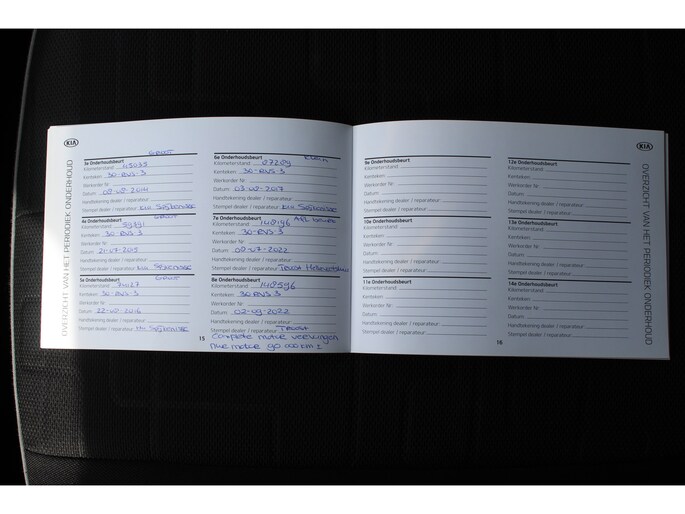 KIA
OVERZICHT VAN HET PERIODIEK ONDERHOUD
GROOT
3e Onderhoudsbeurt
Kilometerstand 43035
Kenteken 30-RVS-3
Werkorder Nr.
Datum
Handtekening dealer / reparateur
Stempel dealer / reparateur KIA
GROOT
4e Onderhoudsbeurt
Kilometerstand
Kenteken 30-RVS-3
Werkorder Nr.
Datum 21-07-2015
Handtekening dealer / reparateur
Stempel dealer / reparateur KIA
GROOT
5e Onderhoudsbeurt
Kilometerstand
Kenteken 30-RVS-3
Werkorder Nr.
Datum
Handtekening dealer / reparateur
Stempel dealer / reparateur KIA
KLEIN
6e Onderhoudsbeurt
Kilometerstand
Kenteken 30-RVS-3
Werkorder Nr.
Datum
Handtekening dealer / reparateur
Stempel dealer / reparateur KIA
7e Onderhoudsbeurt
Kilometerstand 148196
Kenteken 30-RVS-3
Werkorder Nr.
Datum
Handtekening dealer / reparateur
Stempel dealer / reparateur
8e Onderhoudsbeurt
Kilometerstand 148596
Kenteken 30-RVS-3
Werkorder Nr.
Datum 02-09-2022
Handtekening dealer / reparateur
Stempel dealer / reparateur
Complete motor vervangen
motor 90.000 km
15
9e Onderhoudsbeurt
Kilometerstand
Kenteken
Werkorder Nr.
Datum
Handtekening dealer / reparateur
Stempel dealer / reparateur
10e Onderhoudsbeurt
Kilometerstand
Kenteken
Werkorder Nr.
Datum
Handtekening dealer / reparateur
Stempel dealer / reparateur
11e Onderhoudsbeurt
Kilometerstand
Kenteken
Werkorder Nr.
Datum
Handtekening dealer / reparateur
Stempel dealer / reparateur
12e Onderhoudsbeurt
Kilometerstand
Kenteken
Werkorder Nr.
Datum
Handtekening dealer / reparateur
Stempel dealer / reparateur
13e Onderhoudsbeurt
Kilometerstand
Kenteken
Werkorder Nr.
Datum
Handtekening dealer / reparateur
Stempel dealer / reparateur
14e Onderhoudsbeurt
Kilometerstand
Kenteken
Werkorder Nr.
Datum
Handtekening dealer / reparateur
Stempel dealer / reparateur
16
KIA
OVERZICHT VAN HET PERIODIEK ONDERHOUD